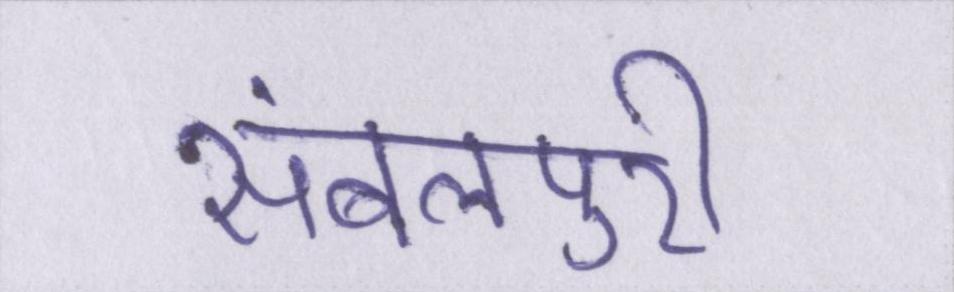 संबलपुरी